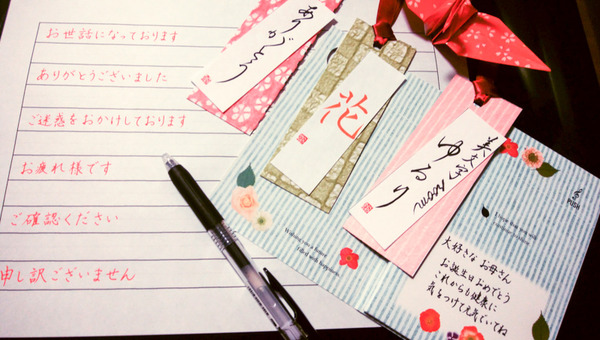 お世話になっております
ありがとうございました
ご迷惑をおかけしております
お疲れ様です
ご確認ください
申し訳ございません
ありがとう
花
美文字room
ゆるり
filled with happiness.
大好きな お母さん
お誕生日おめでとう
これからも健康に
気をつけて元気でいてね